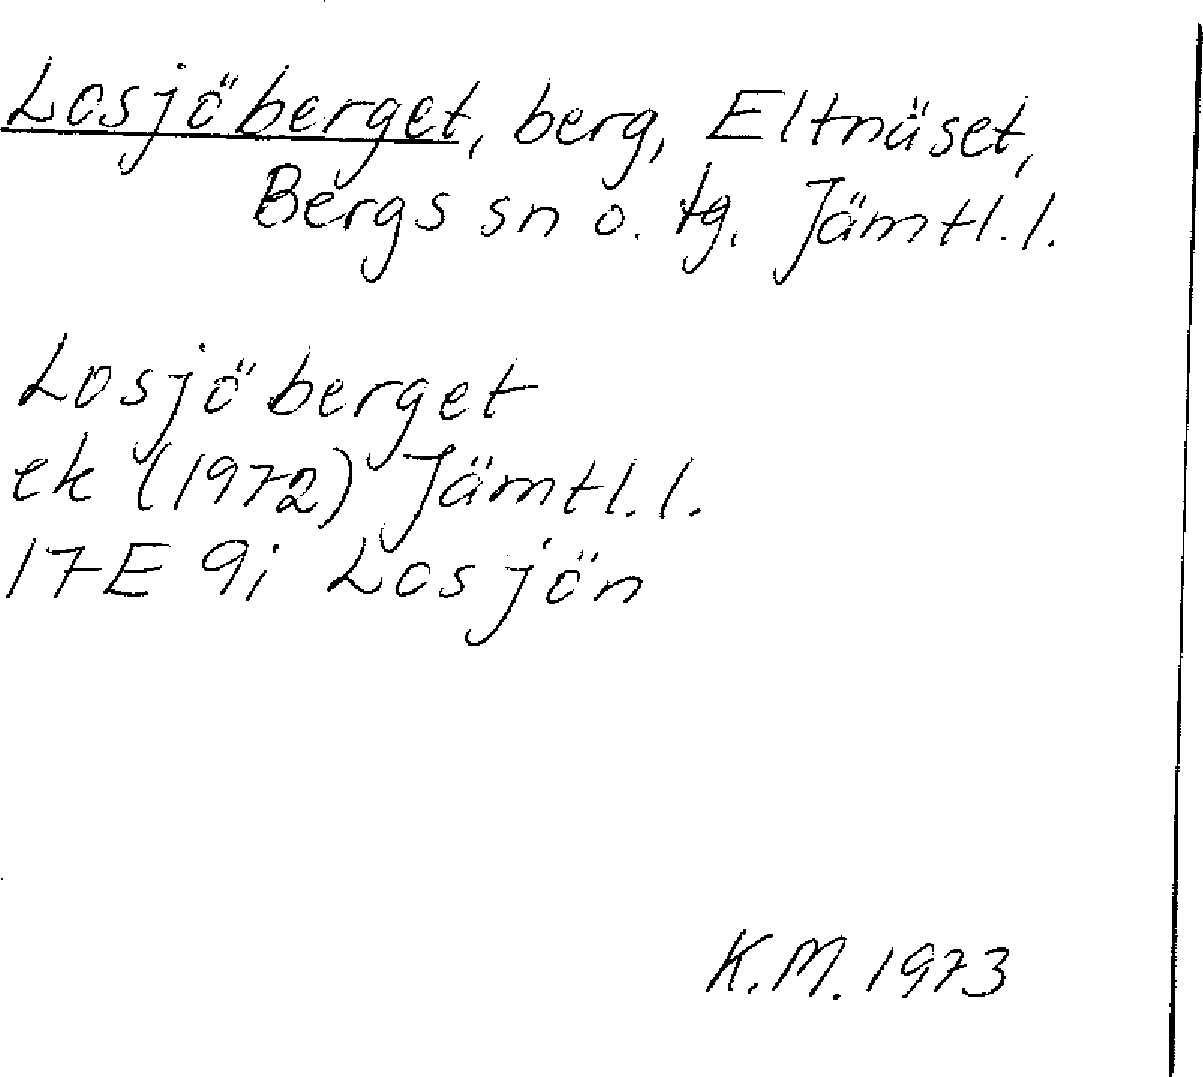 Losjöberget, berg, Eltnäset,
Bergs sn o. tg. Jämtl.l.
Losjöberget
ek (1972) Jämtl.l.
17E 9i Losjön
K.M. 1973